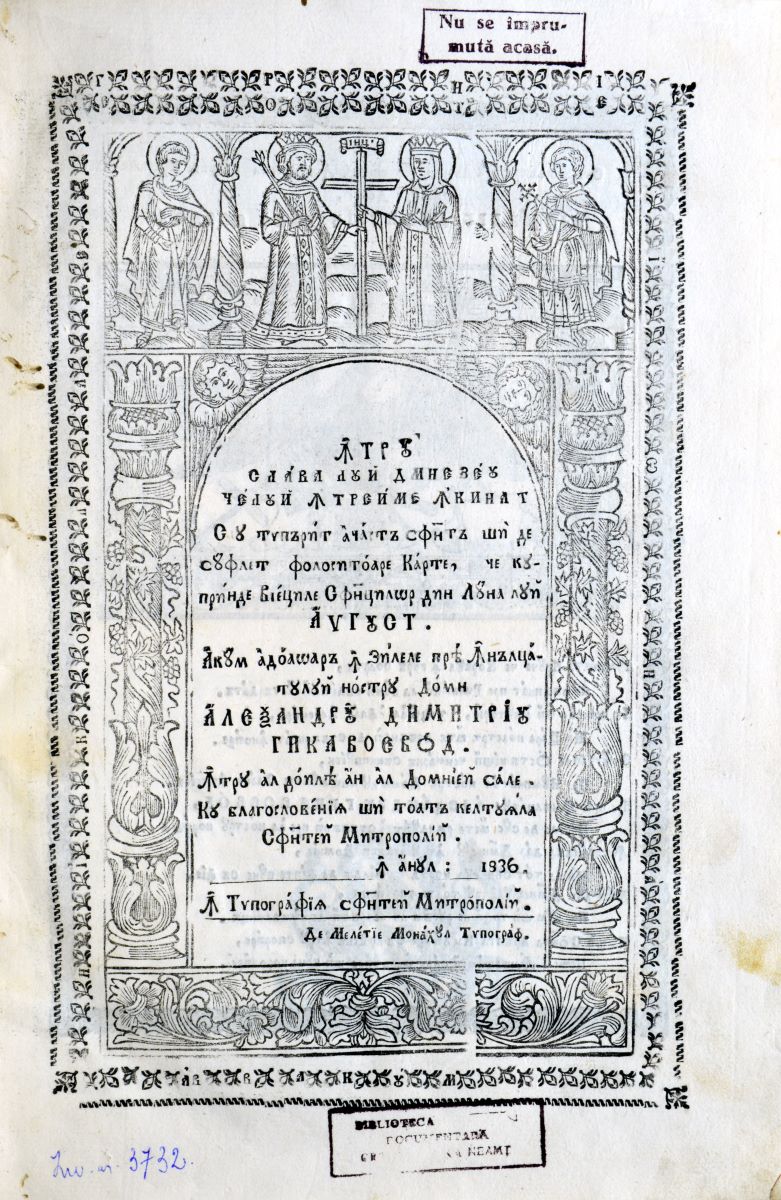 Nu se împru-
mută acasă.
Ꙟтрꙋ
слава лꙋй дмнезеꙋ
челꙋй ꙟтреи́ме ꙟкинат
Сꙋ тѵпъри́т ача́стъ сфи́нтъ шѝ де
сꙋфлет фолоситоаре Ка́рте, че кꙋ-
при́нде вїе́циле Сфи́нцилѡр дин Лꙋ́на лꙋй
А́ѴГꙊСТ.
Акꙋ́м адо́аѡаръ ꙟ Зи́леле прѣ Ꙟнълца́-
тꙋлꙋй но́стрꙋ До́мн
АЛЕѮА́НДРꙊ ДИМИТРІꙊ
ГИКА ВОЕВО́Д.
Ꙟтрꙋ ал до́илѣ ан ал Домнїей са́ле.
Кꙋ благослове́нїѧ шѝ то́атъ келтꙋѧ́ла
Сфи́нтей Митропо́лїй.
ꙟ а́нꙋл: 1836.
Ꙟ Тѵпогра́фїѧ сфи́нтей Митропо́лїй.
Де Меле́тїе Мона́хꙋл Тѵпогра́ф.
BIBLIOTECA
DOCUMENTARĂ
NEAMȚ
Inv. nr. 3732.